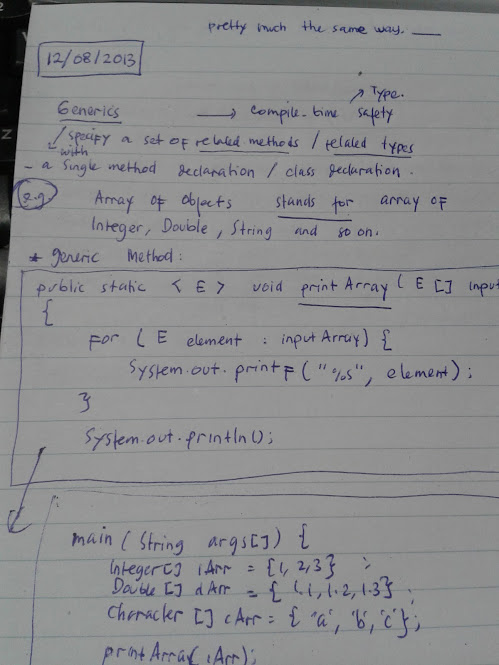 pretty much the same way.
12/08/2013
Type.
Generics → compile-time safety
/ specify a set of related methods / related types
with
- a single method declaration / class declaration.
e.g. Array of objects stands for array of
Integer, Double, String and so on.
* generic Method:
public static < E > void printArray ( E [] input
{
for ( E element : inputArray) {
System.out.printf ("%s", element);
}
System.out.println();
main ( String args[]) {
Integer[] iArr = {1, 2, 3} ;
Double [] dArr = { 1.1, 1.2, 1.3} ;
Character [] cArr = { 'a', 'b', 'c'};
printArray(iArr);